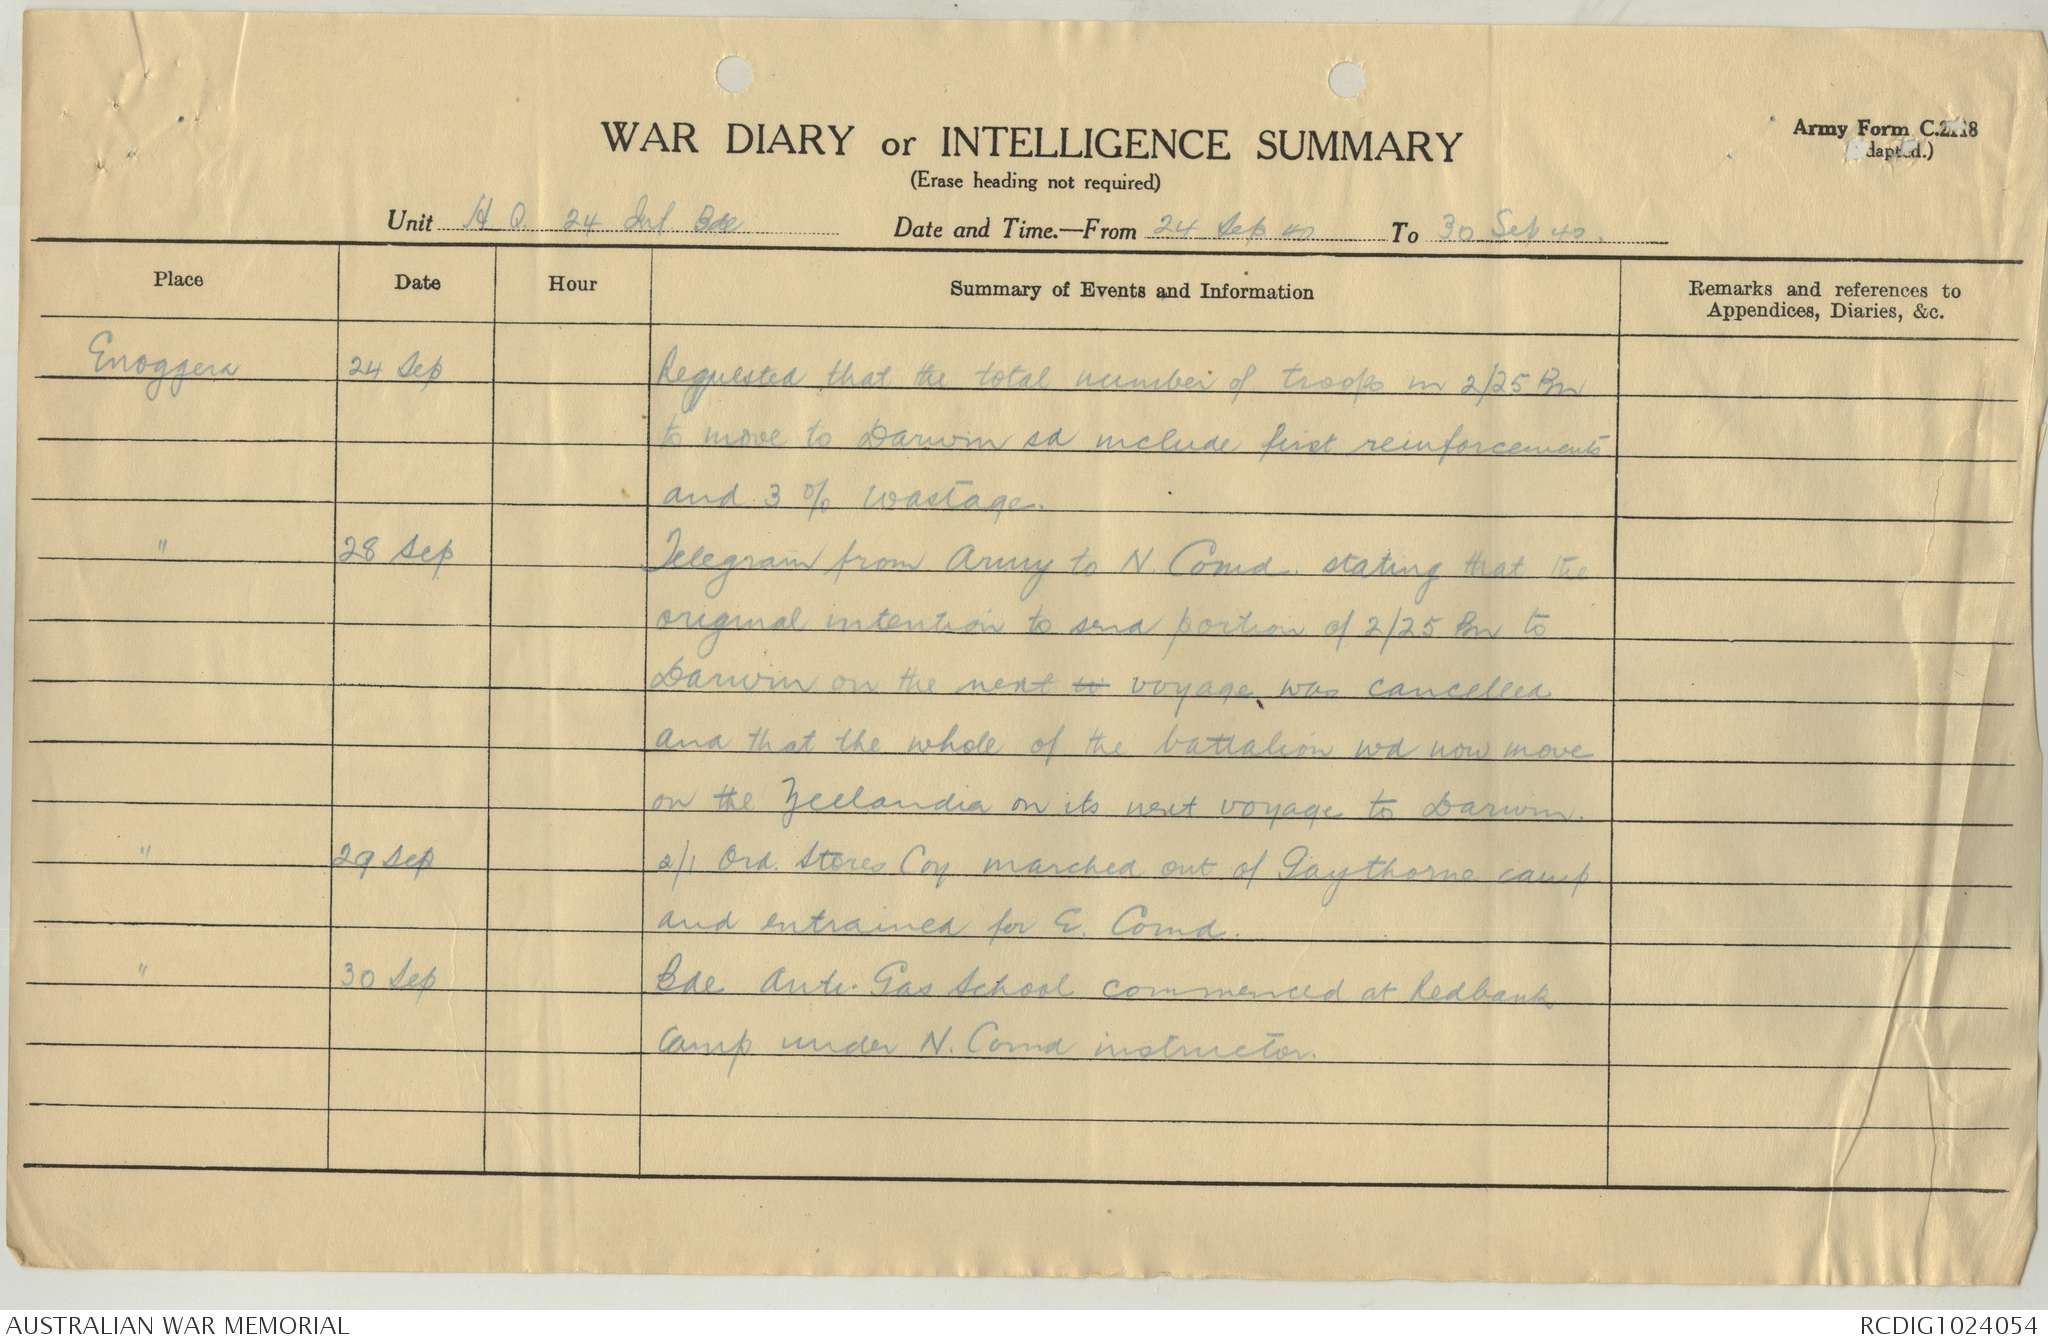 WAR DIARY or INTELLIGENCE SUMMARY
(Erase heading not required)
Army Form C.2118
(Adapted.)
Unit H.Q. 24 Inf Bde Date and Time.—From 24 Sep 40 To 30 Sep 40.
Place Date Hour Summary of Events and Information Remarks and references to
Appendices, Diaries, &c.
Enoggera 24 Sep Requested that the total number of troops in 2/25 Bn
to move to Darwin sd include first reinforcements
and 3 % wastage.
" 28 Sep Telegram from Army to N. Comd. stating that the
original intention to send portion of 2/25 Bn to
Darwin on the next to voyage, was cancelled
and that the whole of the battalion wd now move
on the Zeelandia on its next voyage to Darwin.
" 29 Sep 2/1 Ord. Stores Coy marched out of Gaythorne camp
and entrained for E. Comd.
" 30 Sep Bde Anti-Gas School commenced at Redbank
Camp under N. Comd instructor.
AUSTRALIAN WAR MEMORIAL RCDIG1024054